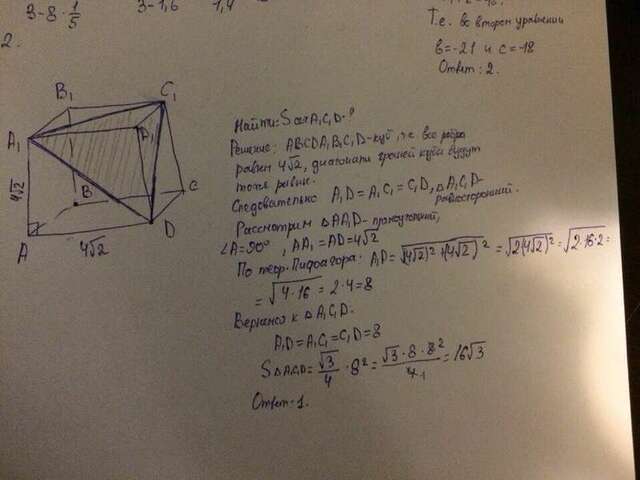 3-8·1/5
3-1,6
1,4
Т.е. во втором уравнении
в=-21 и с=-18
Ответ: 2.
2.
B₁
C₁
A₁
D₁
4√2
B
C
A
4√2
D
Найти: S сеч A₁C₁D-?
Решение: ABCDA₁B₁C₁D₁-куб, т.е. все ребра
равны 4√2, диагонали граней куба будут
тоже равны.
Следовательно A₁D = A₁C₁ = C₁D, △A₁C₁D-
равносторонний.
Рассмотрим △AA₁D- прямоугольный,
∠A=90°, AA₁=AD=4√2
По теор. Пифагора: A₁D=√(4√2)²+(4√2)² = √2(4√2)² = √2·16·2 =
= √4·16 = 2·4=8
Вернемся к △A₁C₁D:
A₁D=A₁C₁=C₁D=8
S△A₁C₁D= √3/4 · 8² = √3·8·8²/4₁ = 16√3
Ответ-1.